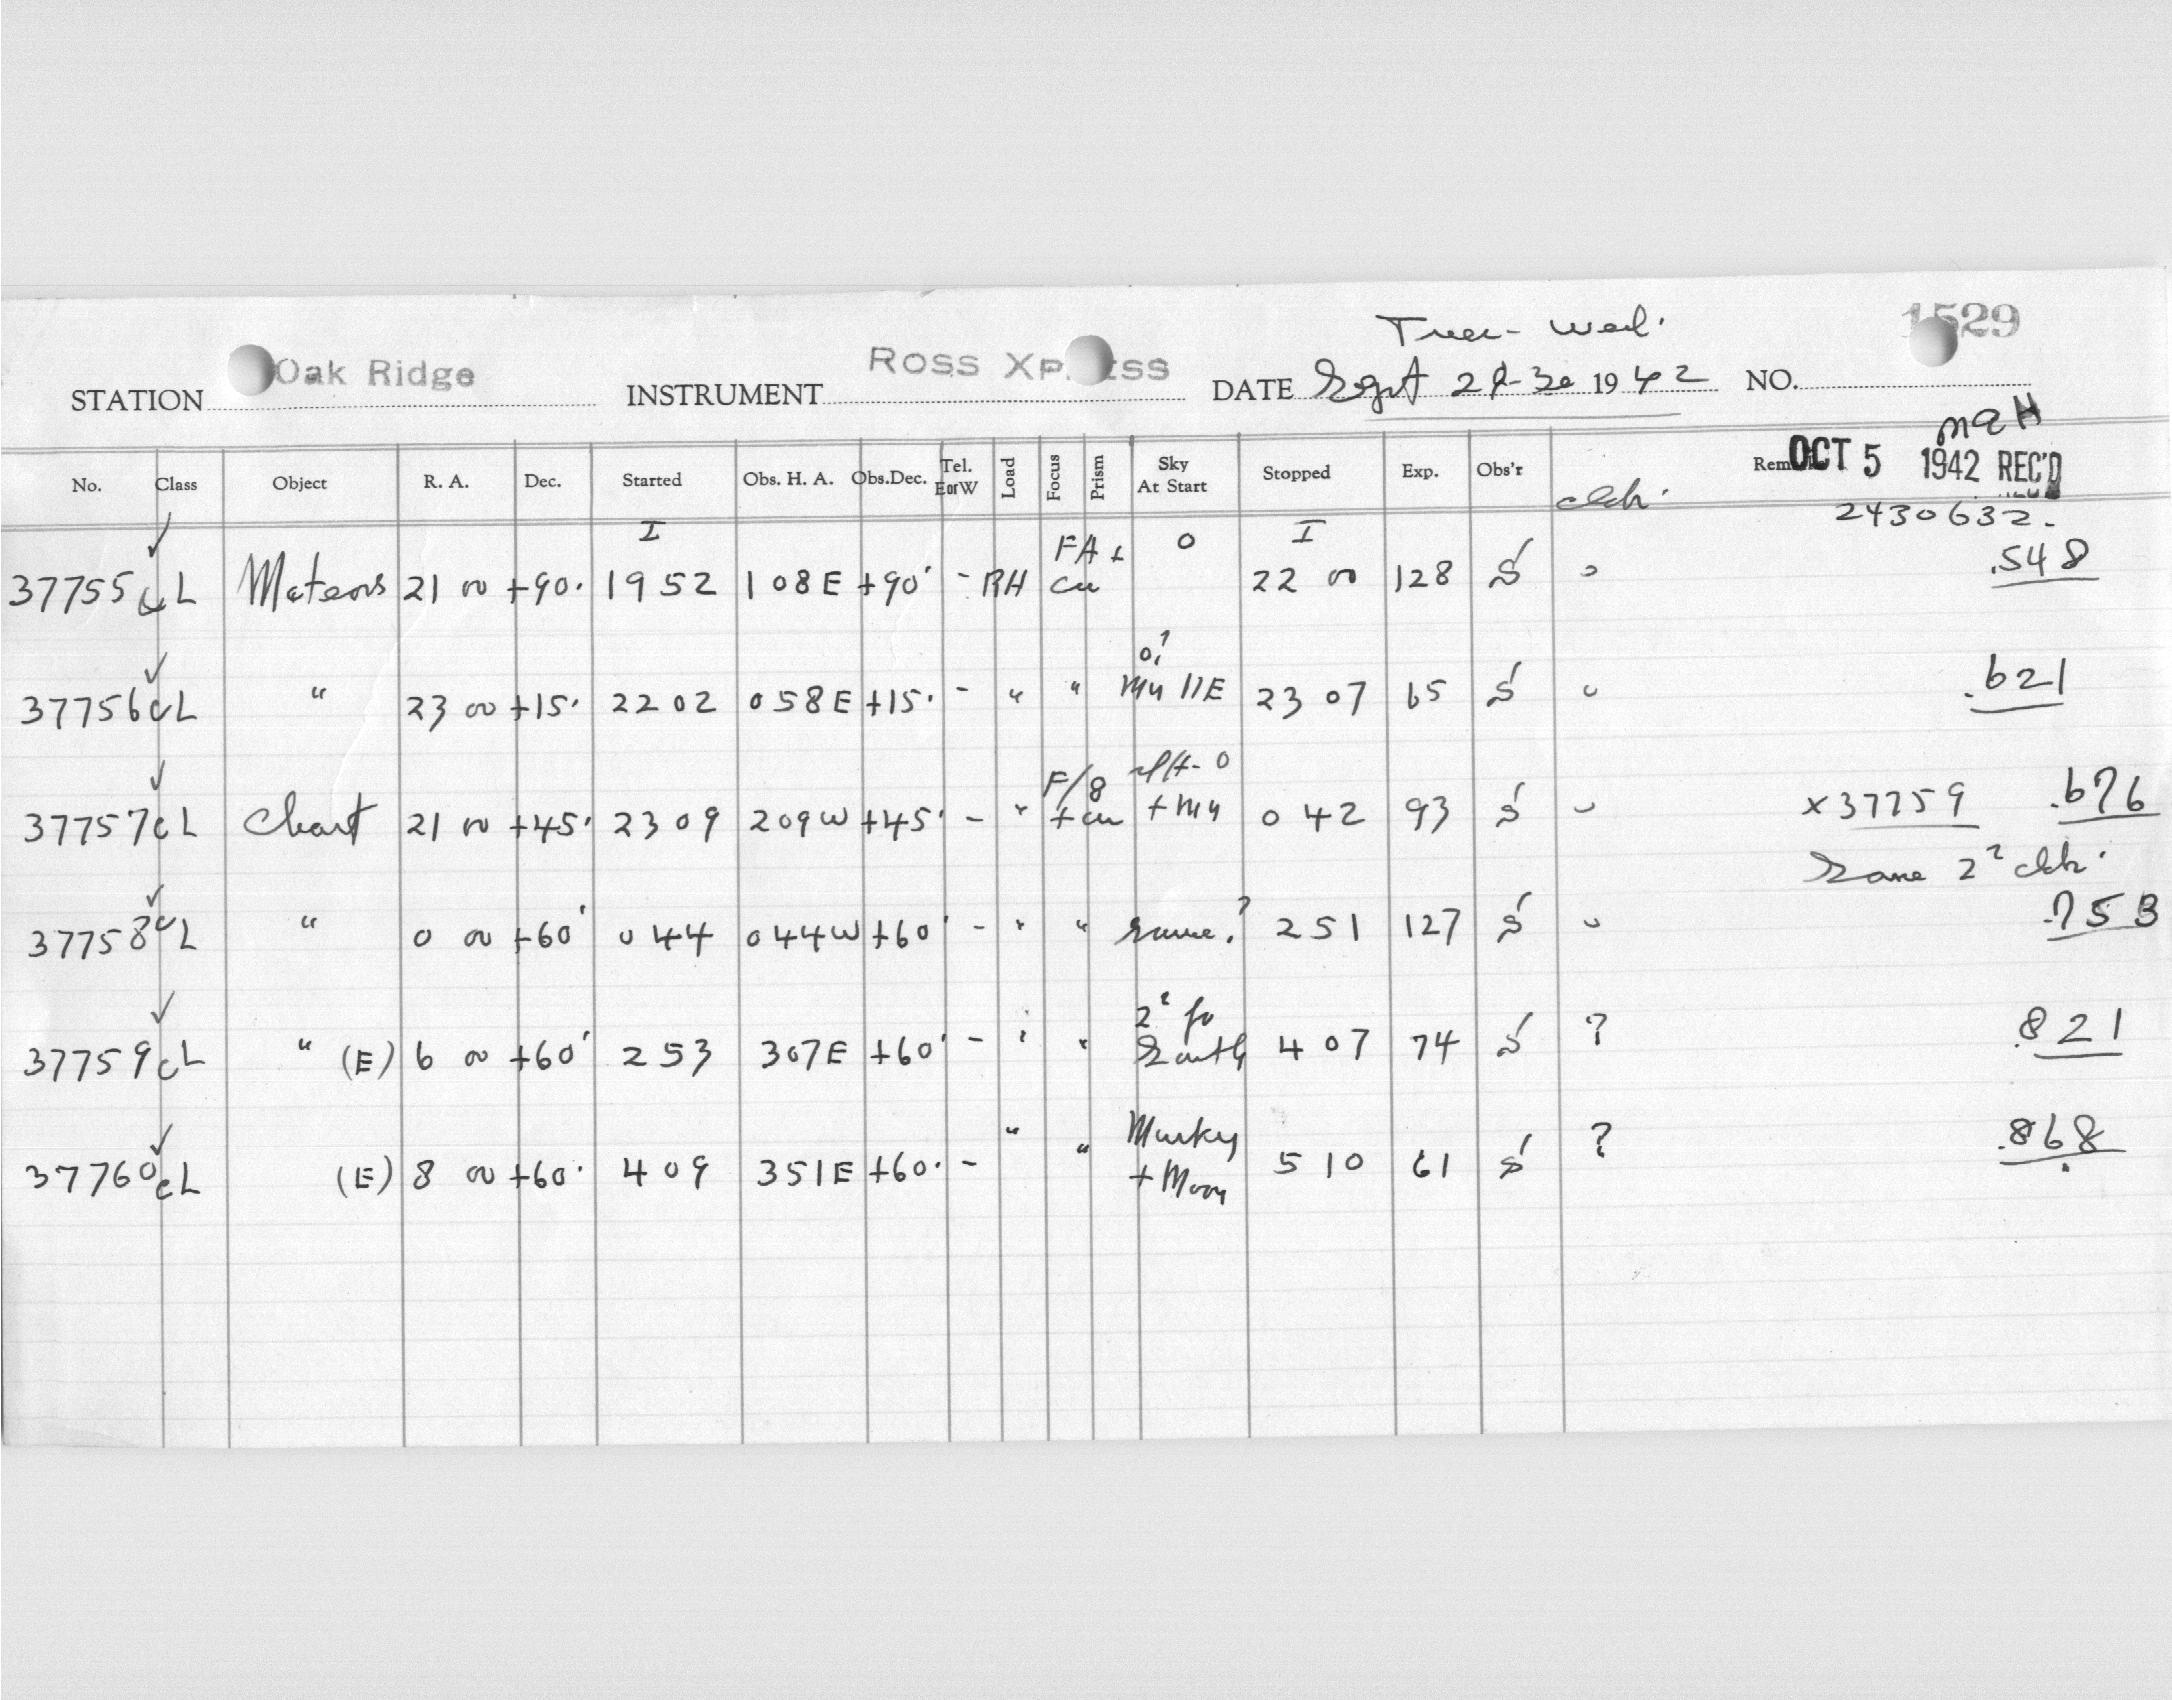 Tues- Wed. 1529
STATION Oak Ridge INSTRUMENT Ross Xpress DATE Sept 29-30 1942 NO.
MAH
OCT 5 1942 REC'D
No. Class Object R. A. Dec. Started Obs. H. A. Obs.Dec. Tel. E or W Load Focus Prism Sky At Start Stopped Exp. Obs'r clch.
2430632.
I I
37755 cL Meteors 21 00 +90. 1952 108E +90 - RH FA + cu 0 22 00 128 S .548
37756 cL " 23 00 +15. 2202 058E +15. - " " 0? Mn 11E 2307 65 S .621
37757 cL Chart 21 00 +45. 2309 209W +45. - " F/8 + cu + Mn 0 42 93 S x 37759 .676
Same 2² clch.
37758 cL " 0 00 +60 044 044W +60 - " " Same? 251 127 S .753
37759 cL " (E) 6 00 +60 253 307E +60 - " " South 407 74 S ? .821
37760 cL (E) 8 00 +60. 409 351E +60. - " " Murky + Moon 510 61 S ? .868